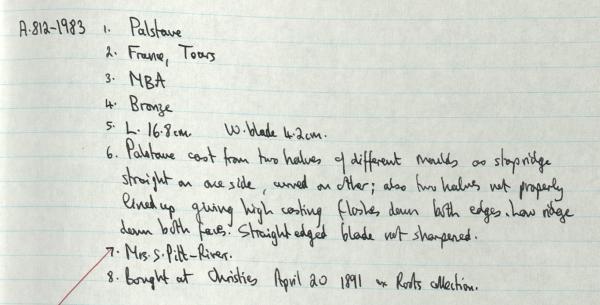 A.812-1983 1. Palstave
2. France, Tours
3. MBA
4. Bronze
5. L. 16.8cm. W. blade 4.2cm.
6. Palstave cast from two halves of different moulds as stopridge
straight on one side, curved on other; also two halves not properly
lined up giving high casting flashes down both edges. Low ridge
down both faces. Straight edged blade not sharpened.
7. Mrs. S. Pitt-Rivers.
8. Bought at Christies April 20 1891 ex Roots collection.